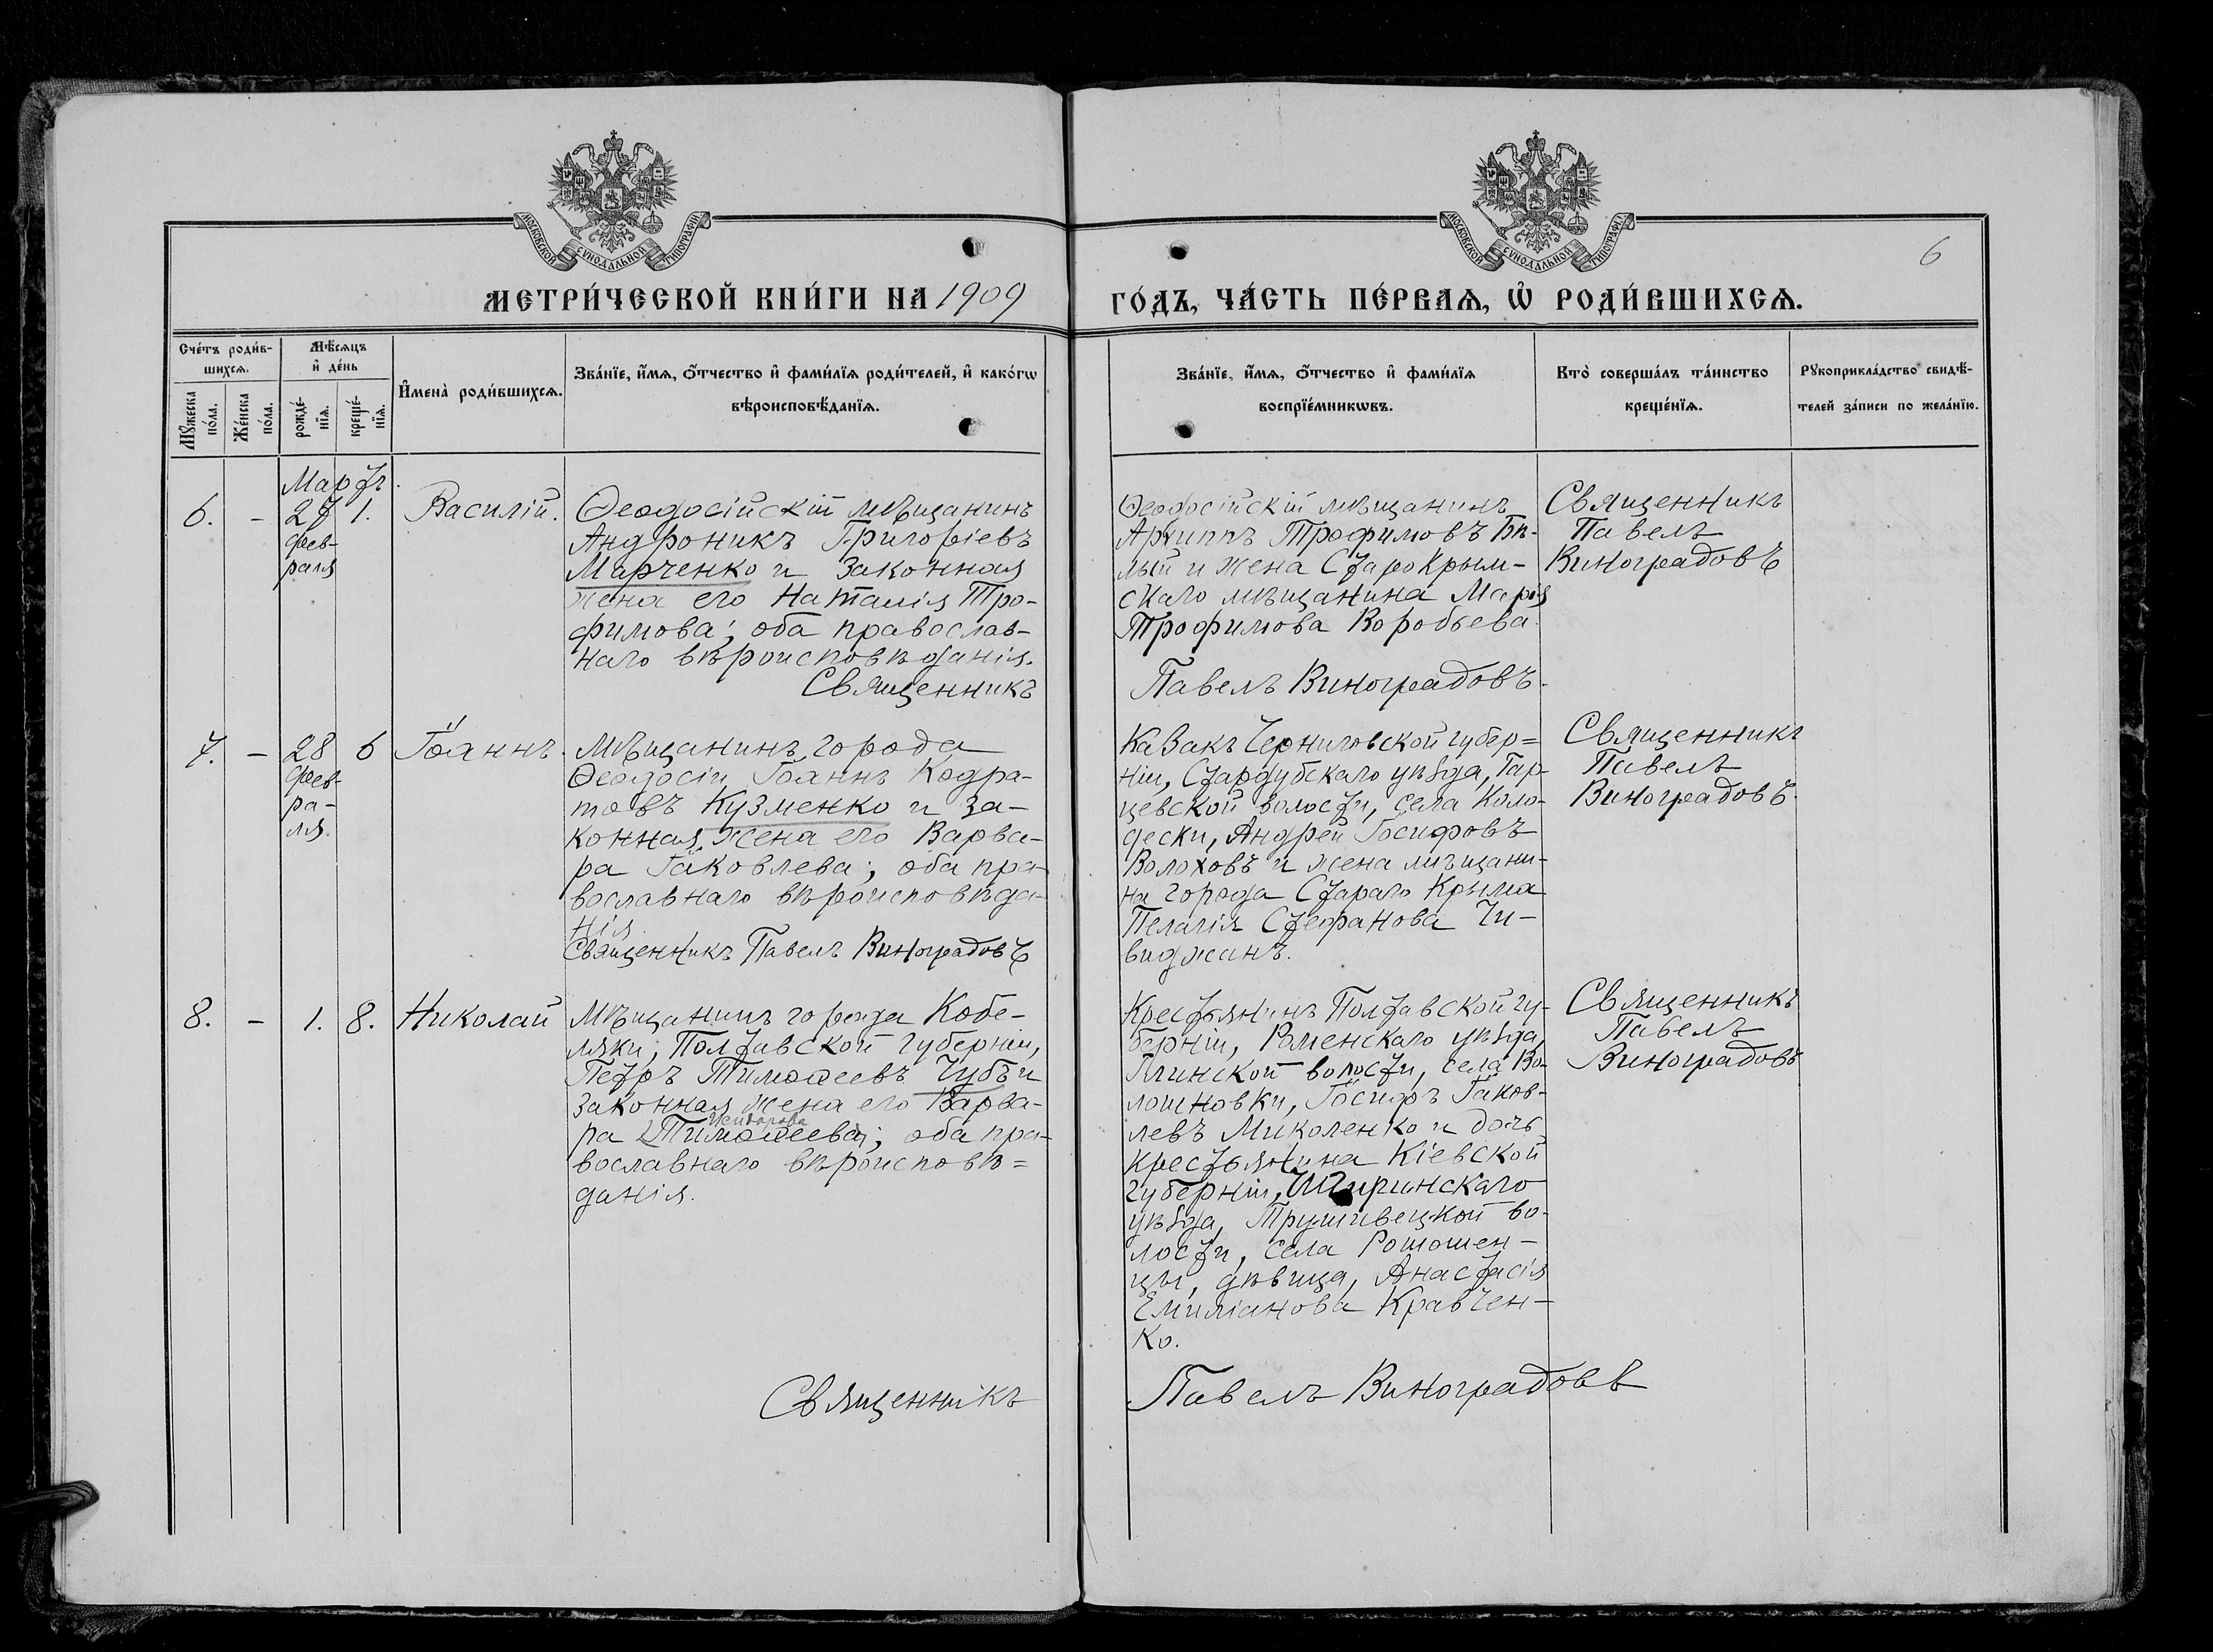 МОСКОВСКОЙ СѴНОДАЛЬНОЙ ТИПОГРАФІИ
МОСКОВСКОЙ СѴНОДАЛЬНОЙ ТИПОГРАФІИ
6
МЕТРИ́ЧЕСКОЙ КНИ́ГИ НА 1909
ГО́ДЪ, ЧА́СТЬ ПЕ́РВАѦ, Ѡ҆ РОДИ́ВШИХСѦ.
Сче́тъ роди́в-
шихсѧ.
Мѣ́сѧцъ
и҆ де́нь
И҆мена̀ роди́вшихсѧ.
Зва́нїе, и҆́мѧ, ѻ҆́тчество и҆ фами́лїѧ роди́телей, и҆ како́гѡ
вѣроисповѣ́данїѧ.
Зва́нїе, и҆́мѧ, ѻ҆́тчество и҆ фами́лїѧ
воспрїе́мникѡвъ.
Кто̀ соверша́лъ та́инство
креще́нїѧ.
Рꙋкоприкла́дство свидѣ́-
телей за́писи по жела́нїю.
Мꙋ́жеска
по́ла.
Же́нска
по́ла.
рожде́-
нїѧ.
креще́-
нїѧ.
Мартъ.
6. - 27 1. Василій.
фев-
раля
Ѳеодосійскій мѣщанинъ
Андроникъ Григоріевъ
Марченко и законная
жена его Наталія Тро-
фимова; оба православ-
наго вѣроисповѣданія.
Священникъ
Ѳеодосійскій мѣщанинъ
Архиппъ Трофимовъ Бѣ-
лый и жена Старокрым-
скаго мѣщанина Марія
Трофимова Воробьева.
Павелъ Виноградовъ.
Священникъ
Павелъ
Виноградовъ
7. - 28 6 Іоаннъ.
фев-
ра-
ля.
Мѣщанинъ города
Ѳеодосіи Іоаннъ Кодра-
товъ Кузменко и за-
конная жена его Варва-
ра Іаковлева; оба пра-
вославнаго вѣроисповѣда-
нія.
Священникъ Павелъ Виноградовъ
Казакъ Черниговской губер=
ніи, Стародубскаго уѣзда, Гар-
цевской волости, села Коло-
дески, Андрей Іосифовъ
Волоховъ и жена мѣщани-
на города Стараго Крыма
Пелагія Стефанова Чи-
виджанъ.
Священникъ
Павелъ
Виноградовъ.
8. - 1. 8. Николай
Мѣщанинъ города Кобе-
ляки, Полтавской губерніи,
Петръ Тимоѳеевъ Чубъ и
законная жена его Варва-
Исидорова
ра Тимоѳеева; оба пра-
вославнаго вѣроисповѣ=
данія.
Священникъ
Крестьянинъ Полтавской гу-
берніи, Роменскаго уѣзда,
Глинской волости, села Во-
лошновки, Іосифъ Іаков-
левъ Миколенко и дочь
крестьянина Кіевской
губерніи, Чигиринскаго
уѣзда, Трушивецкой во-
лости, села Рошошен-
цы, дѣвица, Анастасія
Емиліанова Кравчен-
ко.
Павелъ Виноградовъ
Священникъ
Павелъ
Виноградовъ